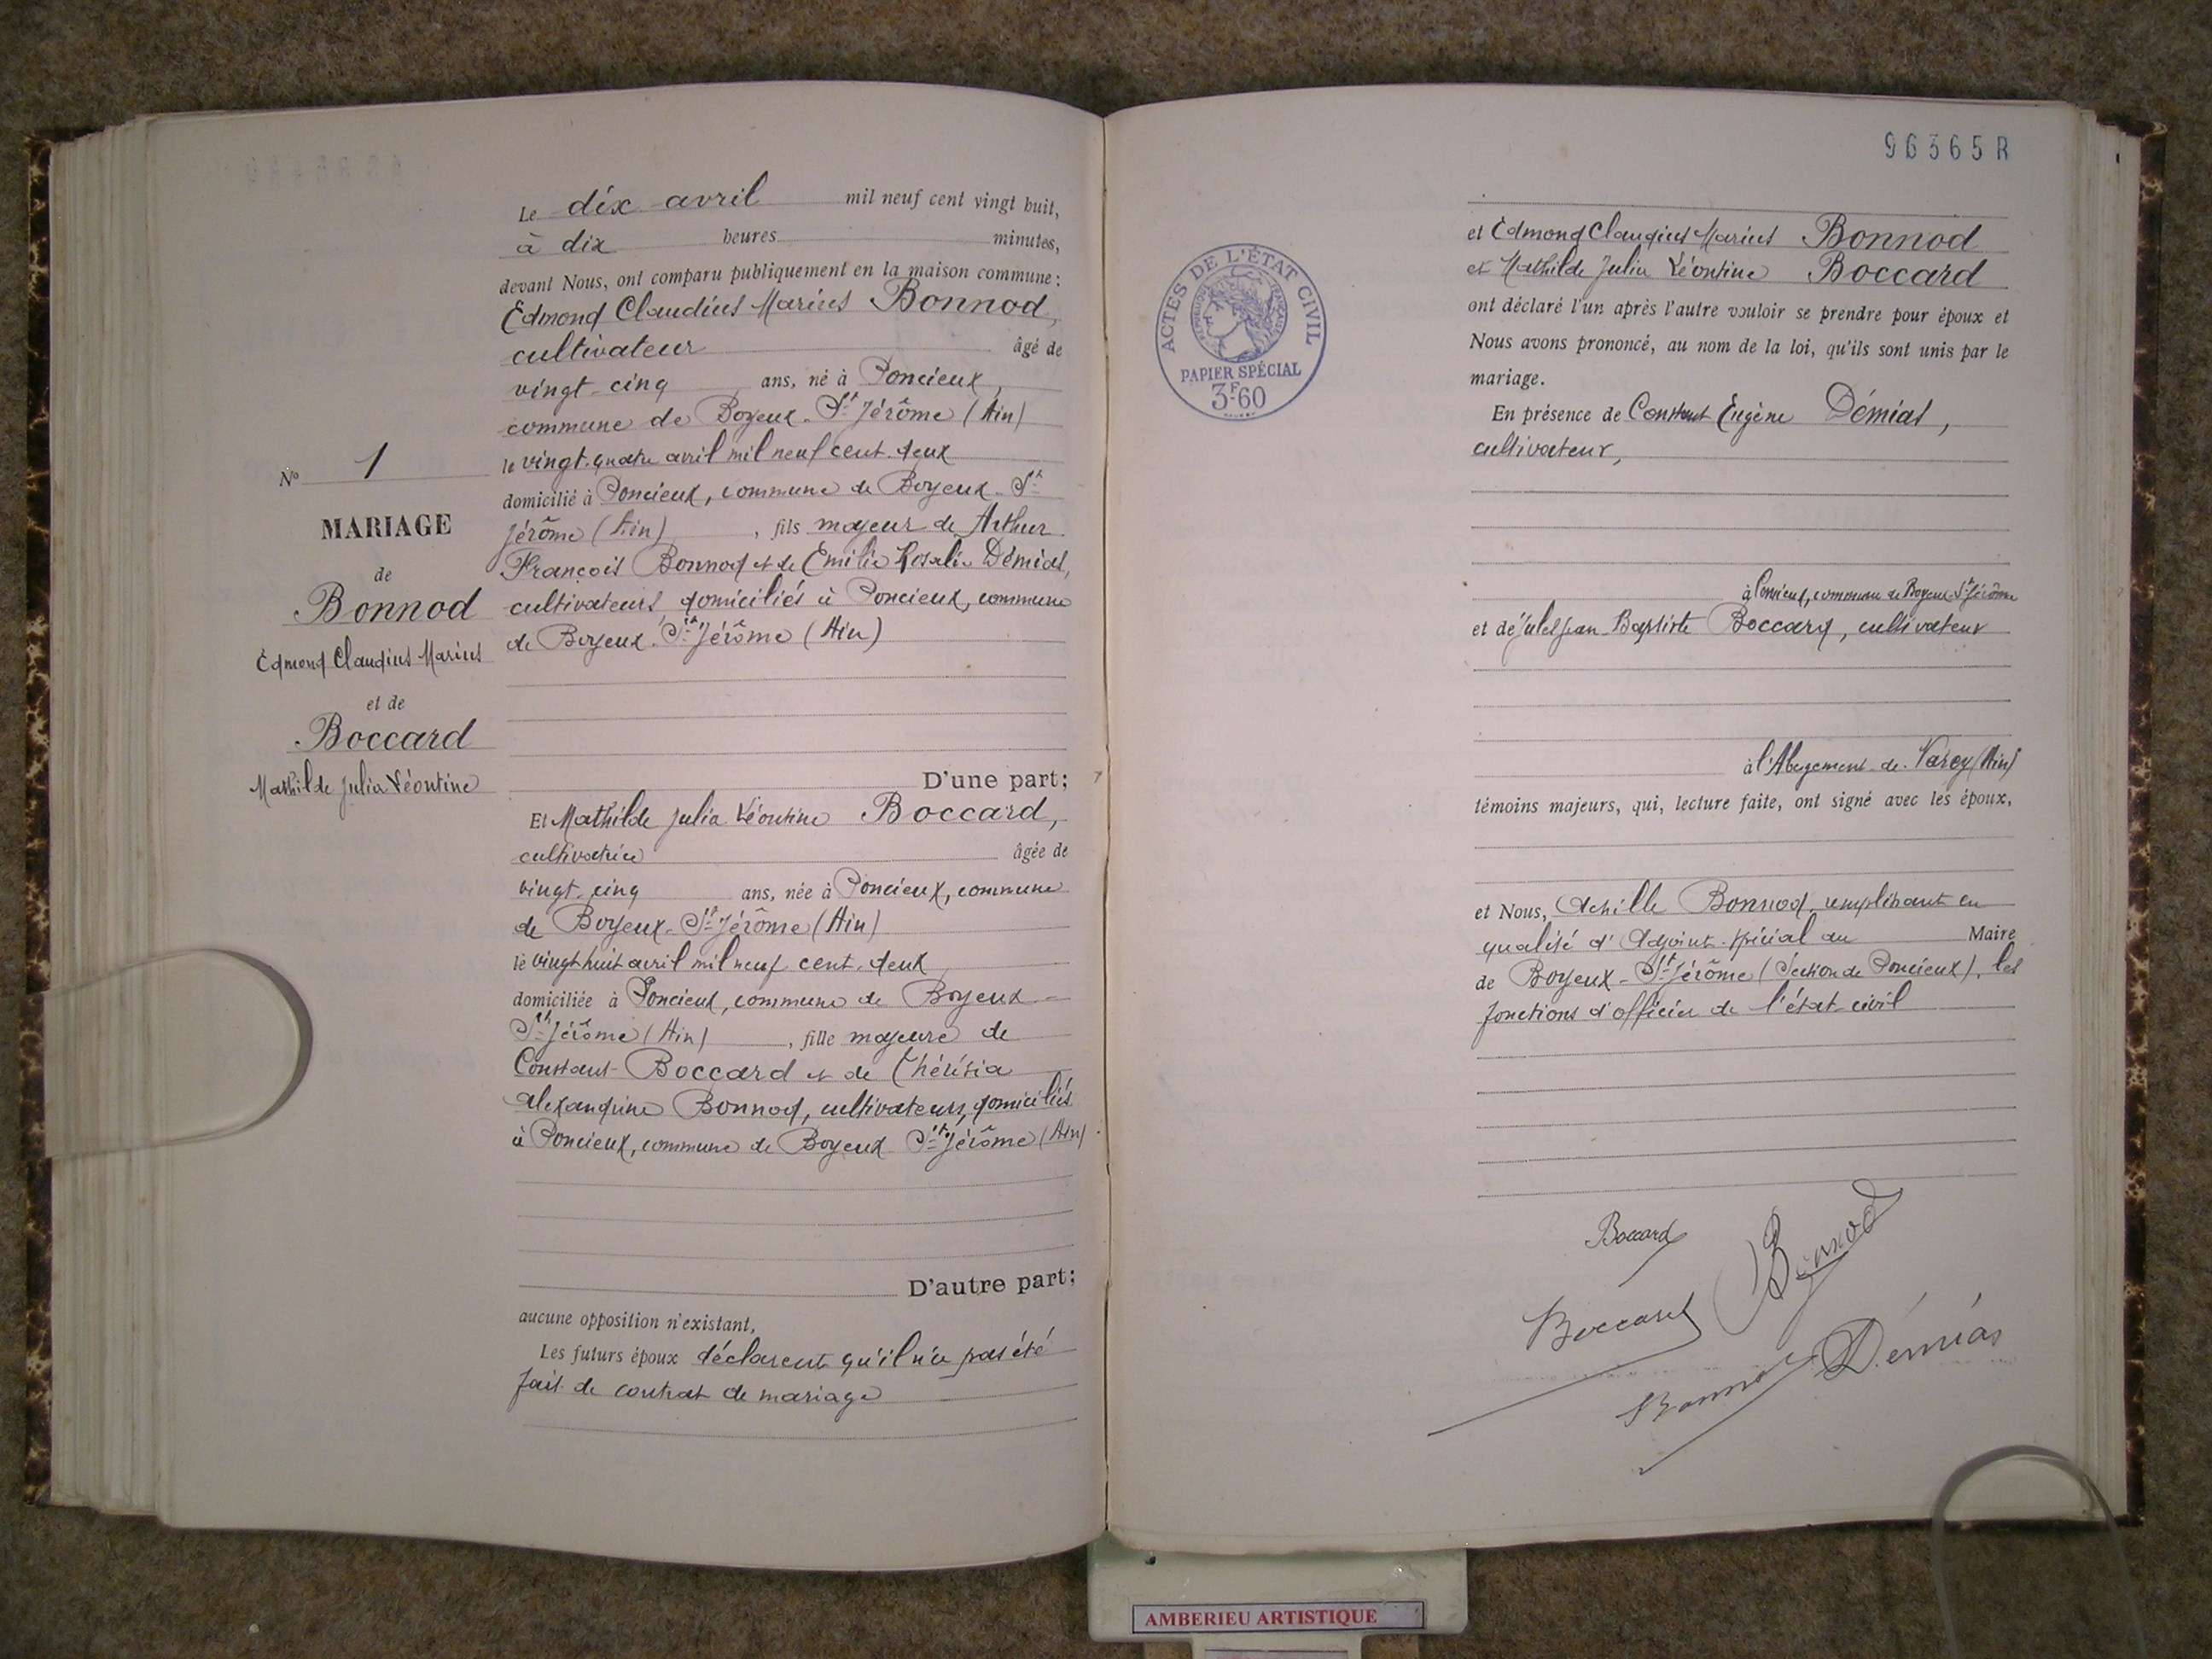 Le dix avril mil neuf cent vingt huit,
à dix heures minutes,
devant Nous, ont comparu publiquement en la maison commune :
Edmond Claudius Marius Bonnod,
cultivateur âgé de
vingt-cinq ans, né à Poncieux,
commune de Boyeux-St Jérôme (Ain)
le vingt-quatre avril mil neuf cent deux
domicilié à Poncieux, commune de Boyeux-St
Jérôme (Ain), fils majeur de Arthur
François Bonnod et de Emilie Rosalie Démias,
cultivateurs domiciliés à Poncieux, commune
de Boyeux-St Jérôme (Ain)
D'une part;
Et Mathilde Julia Léontine Boccard,
cultivatrice âgée de
vingt-cinq ans, née à Poncieux, commune
de Boyeux-St Jérôme (Ain)
le vingt huit avril mil neuf cent deux
domiciliée à Poncieux, commune de Boyeux-
St Jérôme (Ain), fille majeure de
Constant Boccard et de Thérésia
Alexandrine Bonnod, cultivateurs, domiciliés
à Poncieux, commune de Boyeux St Jérôme (Ain)
D'autre part;
aucune opposition n'existant,
Les futurs époux déclarent qu'il n'a pas été
fait de contrat de mariage
No 1
MARIAGE
de
Bonnod
Edmond Claudius Marius
et de
Boccard
Mathilde Julia Léontine
96365R
ACTES DE L'ÉTAT CIVIL
RÉPUBLIQUE FRANÇAISE
PAPIER SPÉCIAL
3F60
et Edmond Claudius Marius Bonnod
et Mathilde Julia Léontine Boccard
ont déclaré l'un après l'autre vouloir se prendre pour époux et
Nous avons prononcé, au nom de la loi, qu'ils sont unis par le
mariage.
En présence de Constant Eugène Démias,
cultivateur,
à Poncieux, commune de Boyeux-St Jérôme
et de Jules Jean-Baptiste Boccard, cultivateur
à l'Abergement-de-Varey (Ain)
témoins majeurs, qui, lecture faite, ont signé avec les époux,
et Nous, Achille Bonnod, remplissant en
qualité d'Adjoint-spécial au Maire
de Boyeux-St Jérôme (Section de Poncieux), les
fonctions d'officier de l'état-civil
Boccard
Bonnod
Boccard
Bonnod
Démias
AMBERIEU ARTISTIQUE